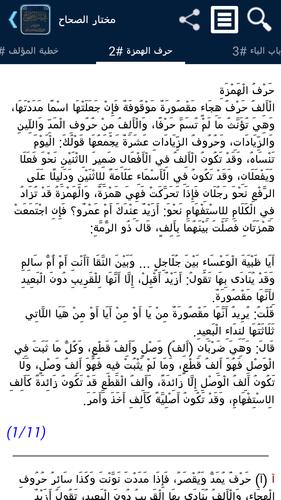 مختار الصحاح
باب الباء #3
حرف الهمزة #2
خطبة المؤلف #
حَرْفُ الْهَمْزَةِ
الْأَلِفُ حَرْفُ هِجَاءٍ مَقْصُورَةٌ مَوْقُوفَةٌ فَإِنْ جَعَلْتَهَا اسْمًا مَدَدْتَهَا،
وَهِيَ تُؤَنَّثُ مَا لَمْ تُسَمَّ حَرْفًا، وَالْأَلِفُ مِنْ حُرُوفِ الْمَدِّ وَاللِّينِ
وَالزِّيَادَاتِ، وَحُرُوفُ الزِّيَادَاتِ عَشَرَةٌ يَجْمَعُهَا قَوْلُكَ: الْيَوْمَ
تَنْسَاهُ، وَقَدْ تَكُونُ الْأَلِفُ فِي الْأَفْعَالِ ضَمِيرَ الِاثْنَيْنِ نَحْوُ فَعَلَا
وَيَفْعَلَانِ، وَقَدْ تَكُونُ فِي الْأَسْمَاءِ عَلَامَةً لِلِاثْنَيْنِ وَدَلِيلًا عَلَى
الرَّفْعِ نَحْوُ رَجُلَانِ فَإِذَا تَحَرَّكَتْ فَهِيَ هَمْزَةٌ، وَالْهَمْزَةُ قَدْ تُزَادُ
فِي الْكَلَامِ لِلِاسْتِفْهَامِ نَحْوُ: أَزَيْدٌ عِنْدَكَ أَمْ عَمْرٌو؟ فَإِنِ اجْتَمَعَتْ
هَمْزَتَانِ فَصَلْتَ بَيْنَهُمَا بِأَلِفٍ، قَالَ ذُو الرُّمَّةِ:
أَيَا ظَبْيَةَ الْوَعْسَاءِ بَيْنَ جُلَاجِلٍ ... وَبَيْنَ النَّقَا آأَنْتِ أَمْ أُمُّ سَالِمِ
وَقَدْ يُنَادَى بِهَا تَقُولُ: أَزَيْدُ أَقْبِلْ، إِلَّا أَنَّهَا لِلْقَرِيبِ دُونَ الْبَعِيدِ
لِأَنَّهَا مَقْصُورَةٌ.
قُلْتُ: يُرِيدُ أَنَّهَا مَقْصُورَةٌ مِنْ يَا أَوْ مِنْ أَيَا أَوْ مِنْ هَيَا اللَّاتِي
ثَلَاثَتُهَا لِنِدَاءِ الْبَعِيدِ.
قَالَ: وَهِيَ ضَرْبَانِ (أَلِفُ) وَصْلٍ وَأَلِفُ قَطْعٍ، وَكُلُّ مَا ثَبَتَ فِي
الْوَصْلِ فَهُوَ أَلِفُ قَطْعٍ، وَمَا لَمْ يَثْبُتْ فِيهِ فَهُوَ أَلِفُ وَصْلٍ، وَلَا
تَكُونُ أَلِفُ الْوَصْلِ إِلَّا زَائِدَةً، وَأَلِفُ الْقَطْعِ قَدْ تَكُونُ زَائِدَةً كَأَلِفِ
الِاسْتِفْهَامِ، وَقَدْ تَكُونُ أَصْلِيَّةً كَأَلِفِ أَخَذَ وَأَمَرَ.
(1/11)
أ (أ) حَرْفٌ يُمَدُّ وَيُقْصَرُ، فَإِذَا مَدَدْتَ نَوَّنْتَ وَكَذَا سَائِرُ حُرُوفِ
الْهِجَاءِ، وَالْأَلِفُ يُنَادَى بِهَا الْقَرِيبُ دُونَ الْبَعِيدِ، تَقُولُ أَزَيْدُ